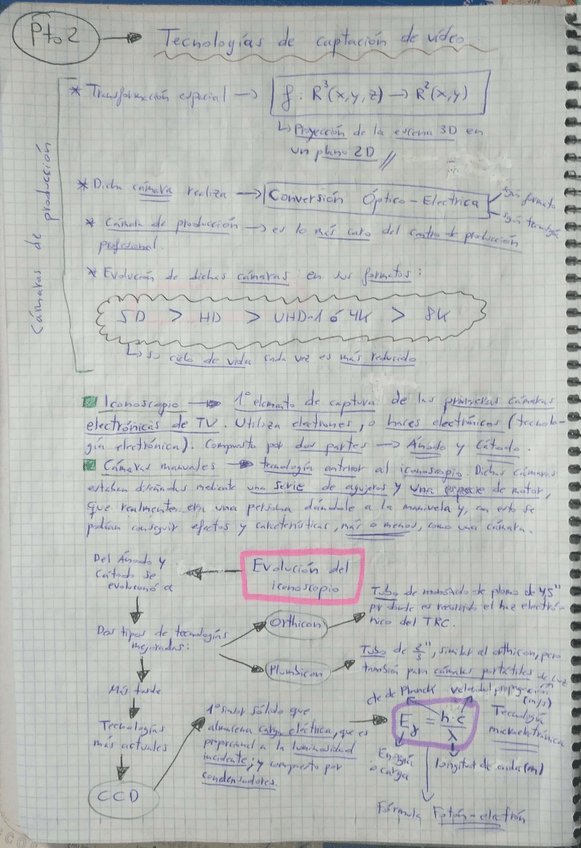 Pto 2 → Tecnologías de captación de vídeo
Cámaras de producción
* Transformación espacial → f: R³(x,y,z) → R²(x,y)
↳ Proyección de la escena 3D en
un plano 2D //
* Dicha cámara realiza → Conversión Óptico-Electrica
Según formato
Según tecnología
* Cámara de producción → es lo más caro del centro de producción
profesional.
* Evolución de dichas cámaras en sus formatos:
SD > HD > UHD-1 ó 4K > 8K
↳ su ciclo de vida cada vez es más reducido
Iconoscopio → 1º elemento de captura de las primeras cámaras
electrónicas de TV. Utiliza electrones, o haces electrónicos (tecnolo-
gía electrónica). Compuesto por dos partes → Ánodo y Cátodo.
Cámaras manuales → tecnología anterior al iconoscopio. Dichas cámaras
estaban diseñadas mediante una serie de agujeros y una especie de motor,
que realmente era una persona dándole a la manivela y, con esto se
podían conseguir efectos y características, más o menos, como una cámara.
Evolución del
iconoscopio
Del Ánodo y
Cátodo se
evolucionó a
Dos tipos de tecnologías
mejoradas:
Orthicon
Tubo de monóxido de plomo de 4,5"
por donde es revisado el haz electró-
nico del TRC.
Plumbicon
Tubo de 2/3", similar al orthicon, pero
también para cámaras portátiles de
Más tarde
Tecnologías
más actuales
CCD
1º sensor sólido que
almacena carga eléctrica, que es
proporcional a la luminosidad
incidente; y compuesto por
condensadores.
cte de Planck
velocidad propagación
(m/s)
E = h·c / λ
Tecnología
microelectrónica
Energía
o carga
longitud de onda (m)
Fórmula Fotón-electrón